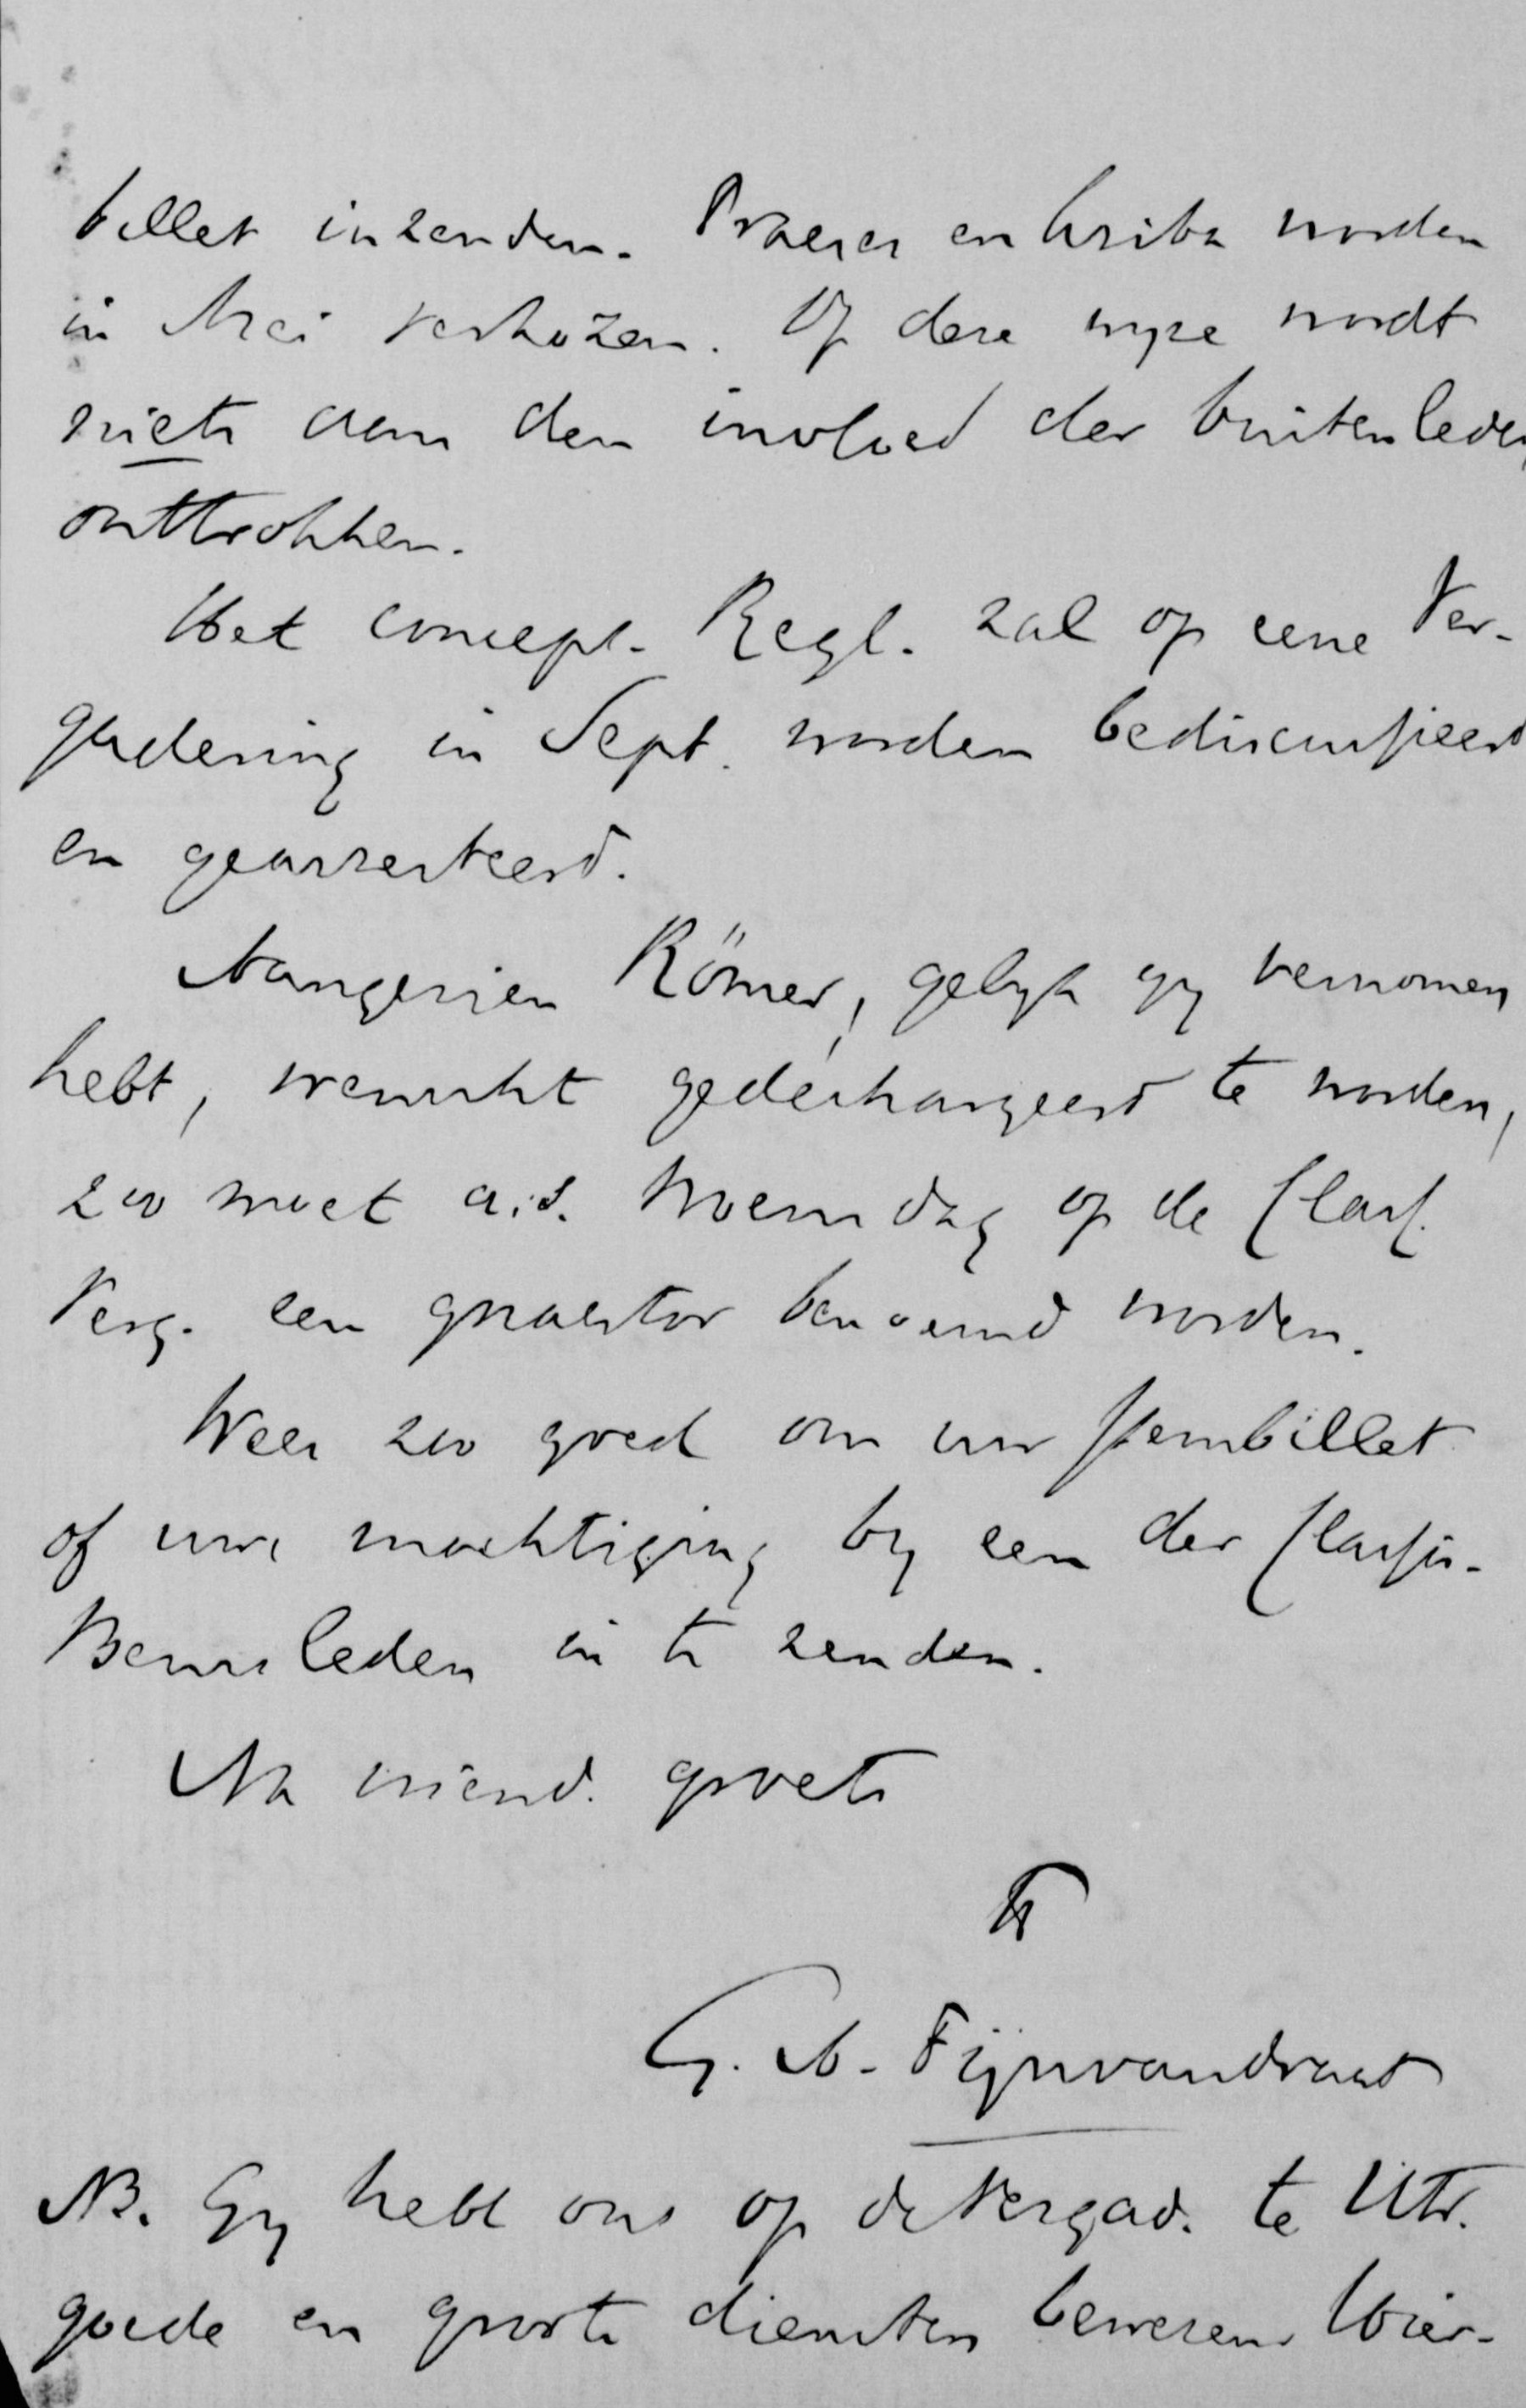 billet inzenden. Praeses en scriba worden
in Mei verkozen. Op deze wyze wordt
niets aan den invloed der buitenleden
onttrokken.
Het concept-Regl. zal op eene Ver-
gadering in Sept. worden bediscussieerd
en gearresteerd.
Aangezien Römer, gelyk gy vernomen
hebt, wenscht gedechargeerd te worden,
zoo moet a.s. Woensdag op de Class.
Verg. een quaestor benoemd worden.
Wees zoo goed om uw stembillet
of uwe machtiging by een der Classis-
Bestuursleden in te zenden.
Na vriend. groete
G. A. Fijnvandraat
NB. Gy hebt ons op de Vergad. te Utr.
goede en groote diensten bewezen. Hier-